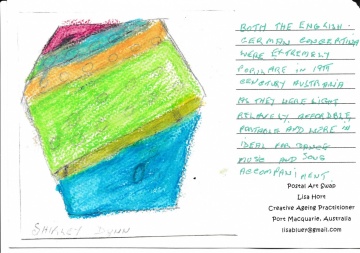 BOTH THE ENGLISH -
GERMAN CONCERTINA
WERE EXTREMELY
POPULARE IN 19TH
CENTURY AUSTRALIA
AS THEY WERE LIGHT
RELAVELY, AFFORDABLE,
PORTABLE AND WERE
IDEAL FOR DANCE
MUSIC AND SONG
ACCOMPANIMENT.
Postal Art Swap
Lisa Hort
Creative Ageing Practitioner
Port Macquarie, Australia
lisabluer@gmail.com
SHIRLEY DUNN